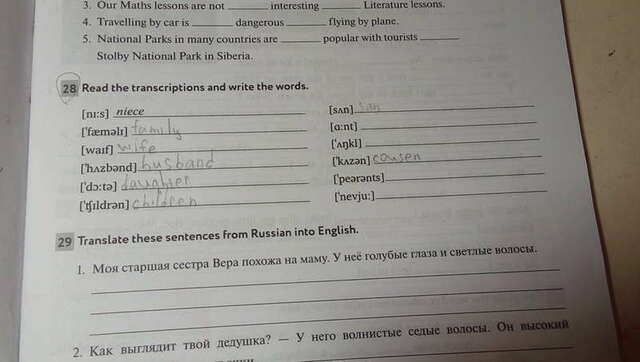 3. Our Maths lessons are not ______ interesting ______ Literature lessons.
4. Travelling by car is ______ dangerous ______ flying by plane.
5. National Parks in many countries are ______ popular with tourists ______
Stolby National Park in Siberia.
28 Read the transcriptions and write the words.
[ni:s] niece [sʌn]
['fæməli] family [ɑ:nt]
[waɪf] wife ['ʌŋkl]
['hʌzbənd] husband ['kʌzən] cousen
['dɔ:tə] ['peərənts]
['tʃɪldrən] children ['nevju:]
29 Translate these sentences from Russian into English.
1. Моя старшая сестра Вера похожа на маму. У неё голубые глаза и светлые волосы.
2. Как выглядит твой дедушка? — У него волнистые седые волосы. Он высокий